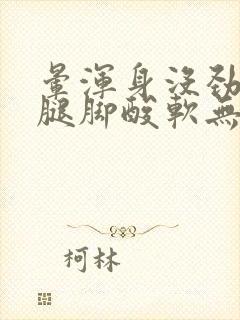 暈渾身沒勁
腿脚酸軟無
柯林